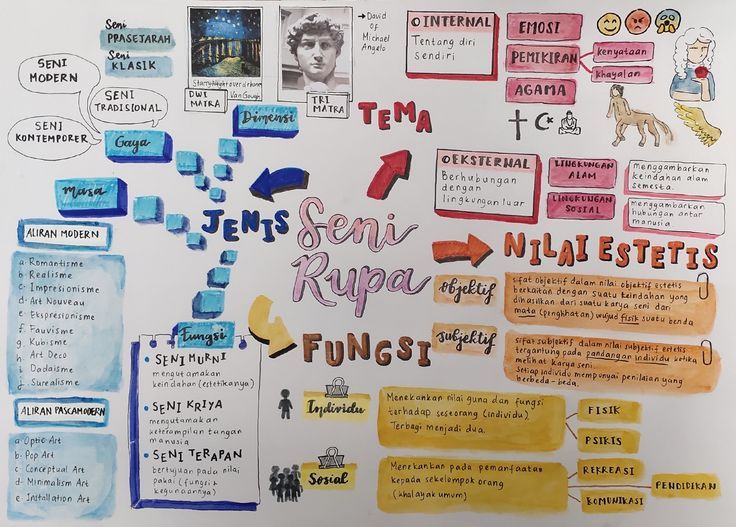 Seni Rupa
JENIS
Gaya
SENI MODERN
SENI TRADISIONAL
SENI KONTEMPORER
Masa
Seni PRASEJARAH
Seni KLASIK
ALIRAN MODERN
a. Romantisme
b. Realisme
c. Impresionisme
d. Art Nouveau
e. Ekspresionisme
f. Fauvisme
g. Kubisme
h. Art Deco
i. Dadaisme
j. Surealisme
ALIRAN PASCAMODERN
a. Optic Art
b. Pop Art
c. Conceptual Art
d. Minimalism Art
e. Installation Art
Dimensi
DWI MATRA
Van Gough
TRI MATRA
→ David Of Michael Angelo
Fungsi
• SENI MURNI
mengutamakan
keindahan (estetikanya)
• SENI KRIYA
mengutamakan
keterampilan tangan
manusia
• SENI TERAPAN
bertujuan pada nilai
pakai (fungsi &
kegunaannya)
TEMA
INTERNAL
Tentang diri
sendiri
EMOSI
PEMIKIRAN
kenyataan
khayalan
AGAMA
EKSTERNAL
Berhubungan
dengan
lingkungan luar
LINGKUNGAN
ALAM
menggambarkan
keindahan alam
semesta.
LINGKUNGAN
SOSIAL
menggambarkan
hubungan antar
manusia
NILAI ESTETIS
objektif
sifat objektif dalam nilai objektif estetis
berkaitan dengan suatu keindahan yang
dihasilkan dari suatu karya seni dari
mata (penglihatan) wujud fisik suatu benda
subjektif
sifat subjektif dalam nilai subjektif estetis
tergantung pada pandangan individu ketika
melihat karya seni.
Setiap individu mempunyai penilaian yang
berbeda-beda.
FUNGSI
Individu
Menekankan nilai guna dan fungsi
terhadap seseorang (individu).
Terbagi menjadi dua.
FISIK
PSIKIS
Sosial
Menekankan pada pemanfaatan
kepada sekelompok orang
(khalayak umum)
REKREASI
KOMUNIKASI
PENDIDIKAN